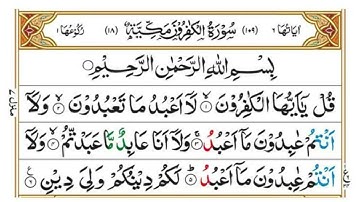 اٰیَاتُهَا ٦ (١٠٩) سُوْرَةُ الْكٰفِرُوْنَ مَكِّیَّةٌ (١٨) رُكُوْعُهَا ١
بِسْمِ اللّٰهِ الرَّحْمٰنِ الرَّحِیْمِ
قُلْ یٰۤاَیُّهَا الْكٰفِرُوْنَ ۙ١ لَاۤ اَعْبُدُ مَا تَعْبُدُوْنَ ۙ٢ وَلَاۤ
اَنْتُمْ عٰبِدُوْنَ مَاۤ اَعْبُدُ ۚ٣ وَلَاۤ اَنَا عَابِدٌ مَّا عَبَدْتُّمْ ۙ٤ وَلَاۤ
اَنْتُمْ عٰبِدُوْنَ مَاۤ اَعْبُدُ ؕ٥ لَكُمْ دِیْنُكُمْ وَلِیَ دِیْنِ ۠٦